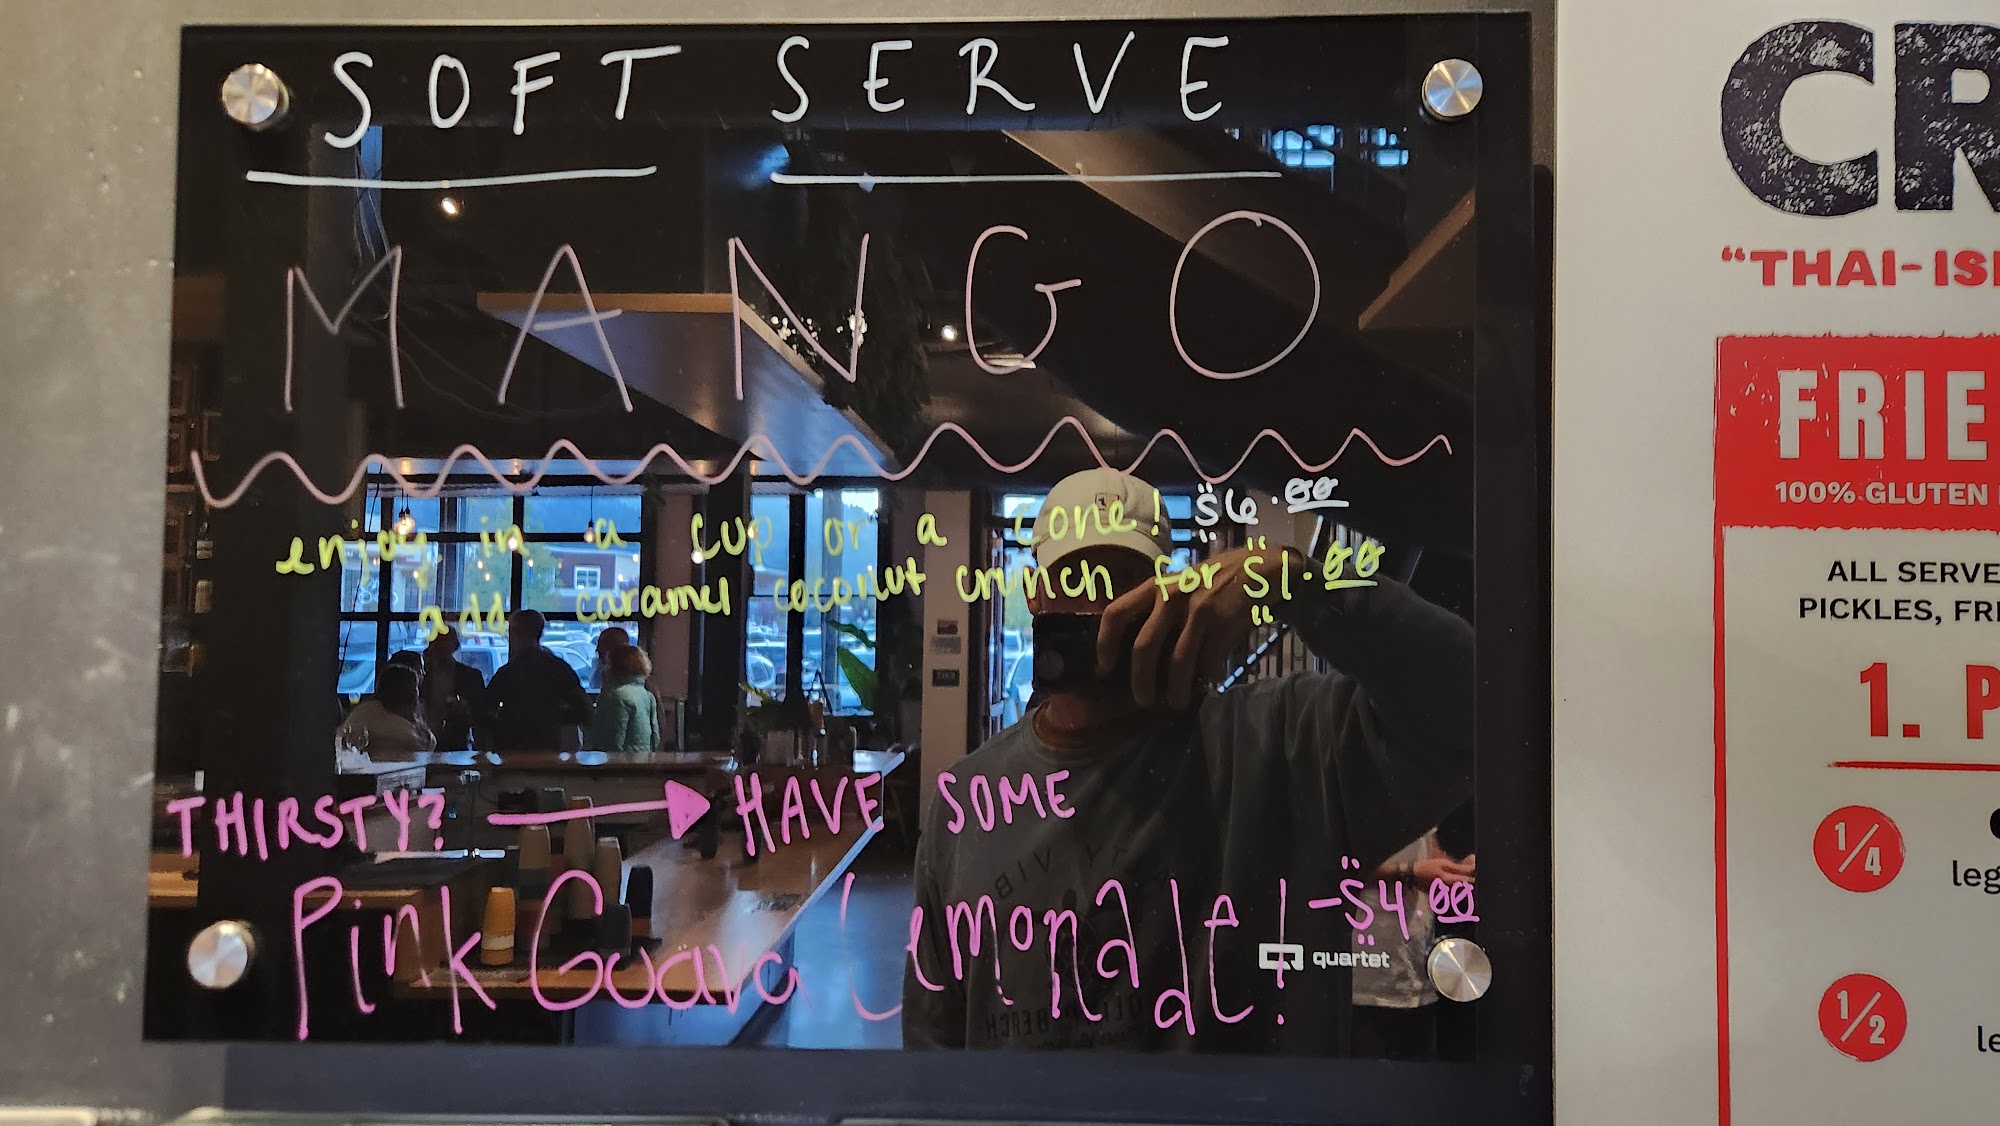 SOFT SERVE
MANGO
enjoy in a cup or a cone! $6.00
add caramel coconut crunch for $1.00
THIRSTY? → HAVE SOME
Pink Guava Lemonade! -$4.00
quartet
CR
"THAI-IS
FRIE
100% GLUTEN
ALL SERVE
PICKLES, FRI
1. P
1/4
leg
1/2
le